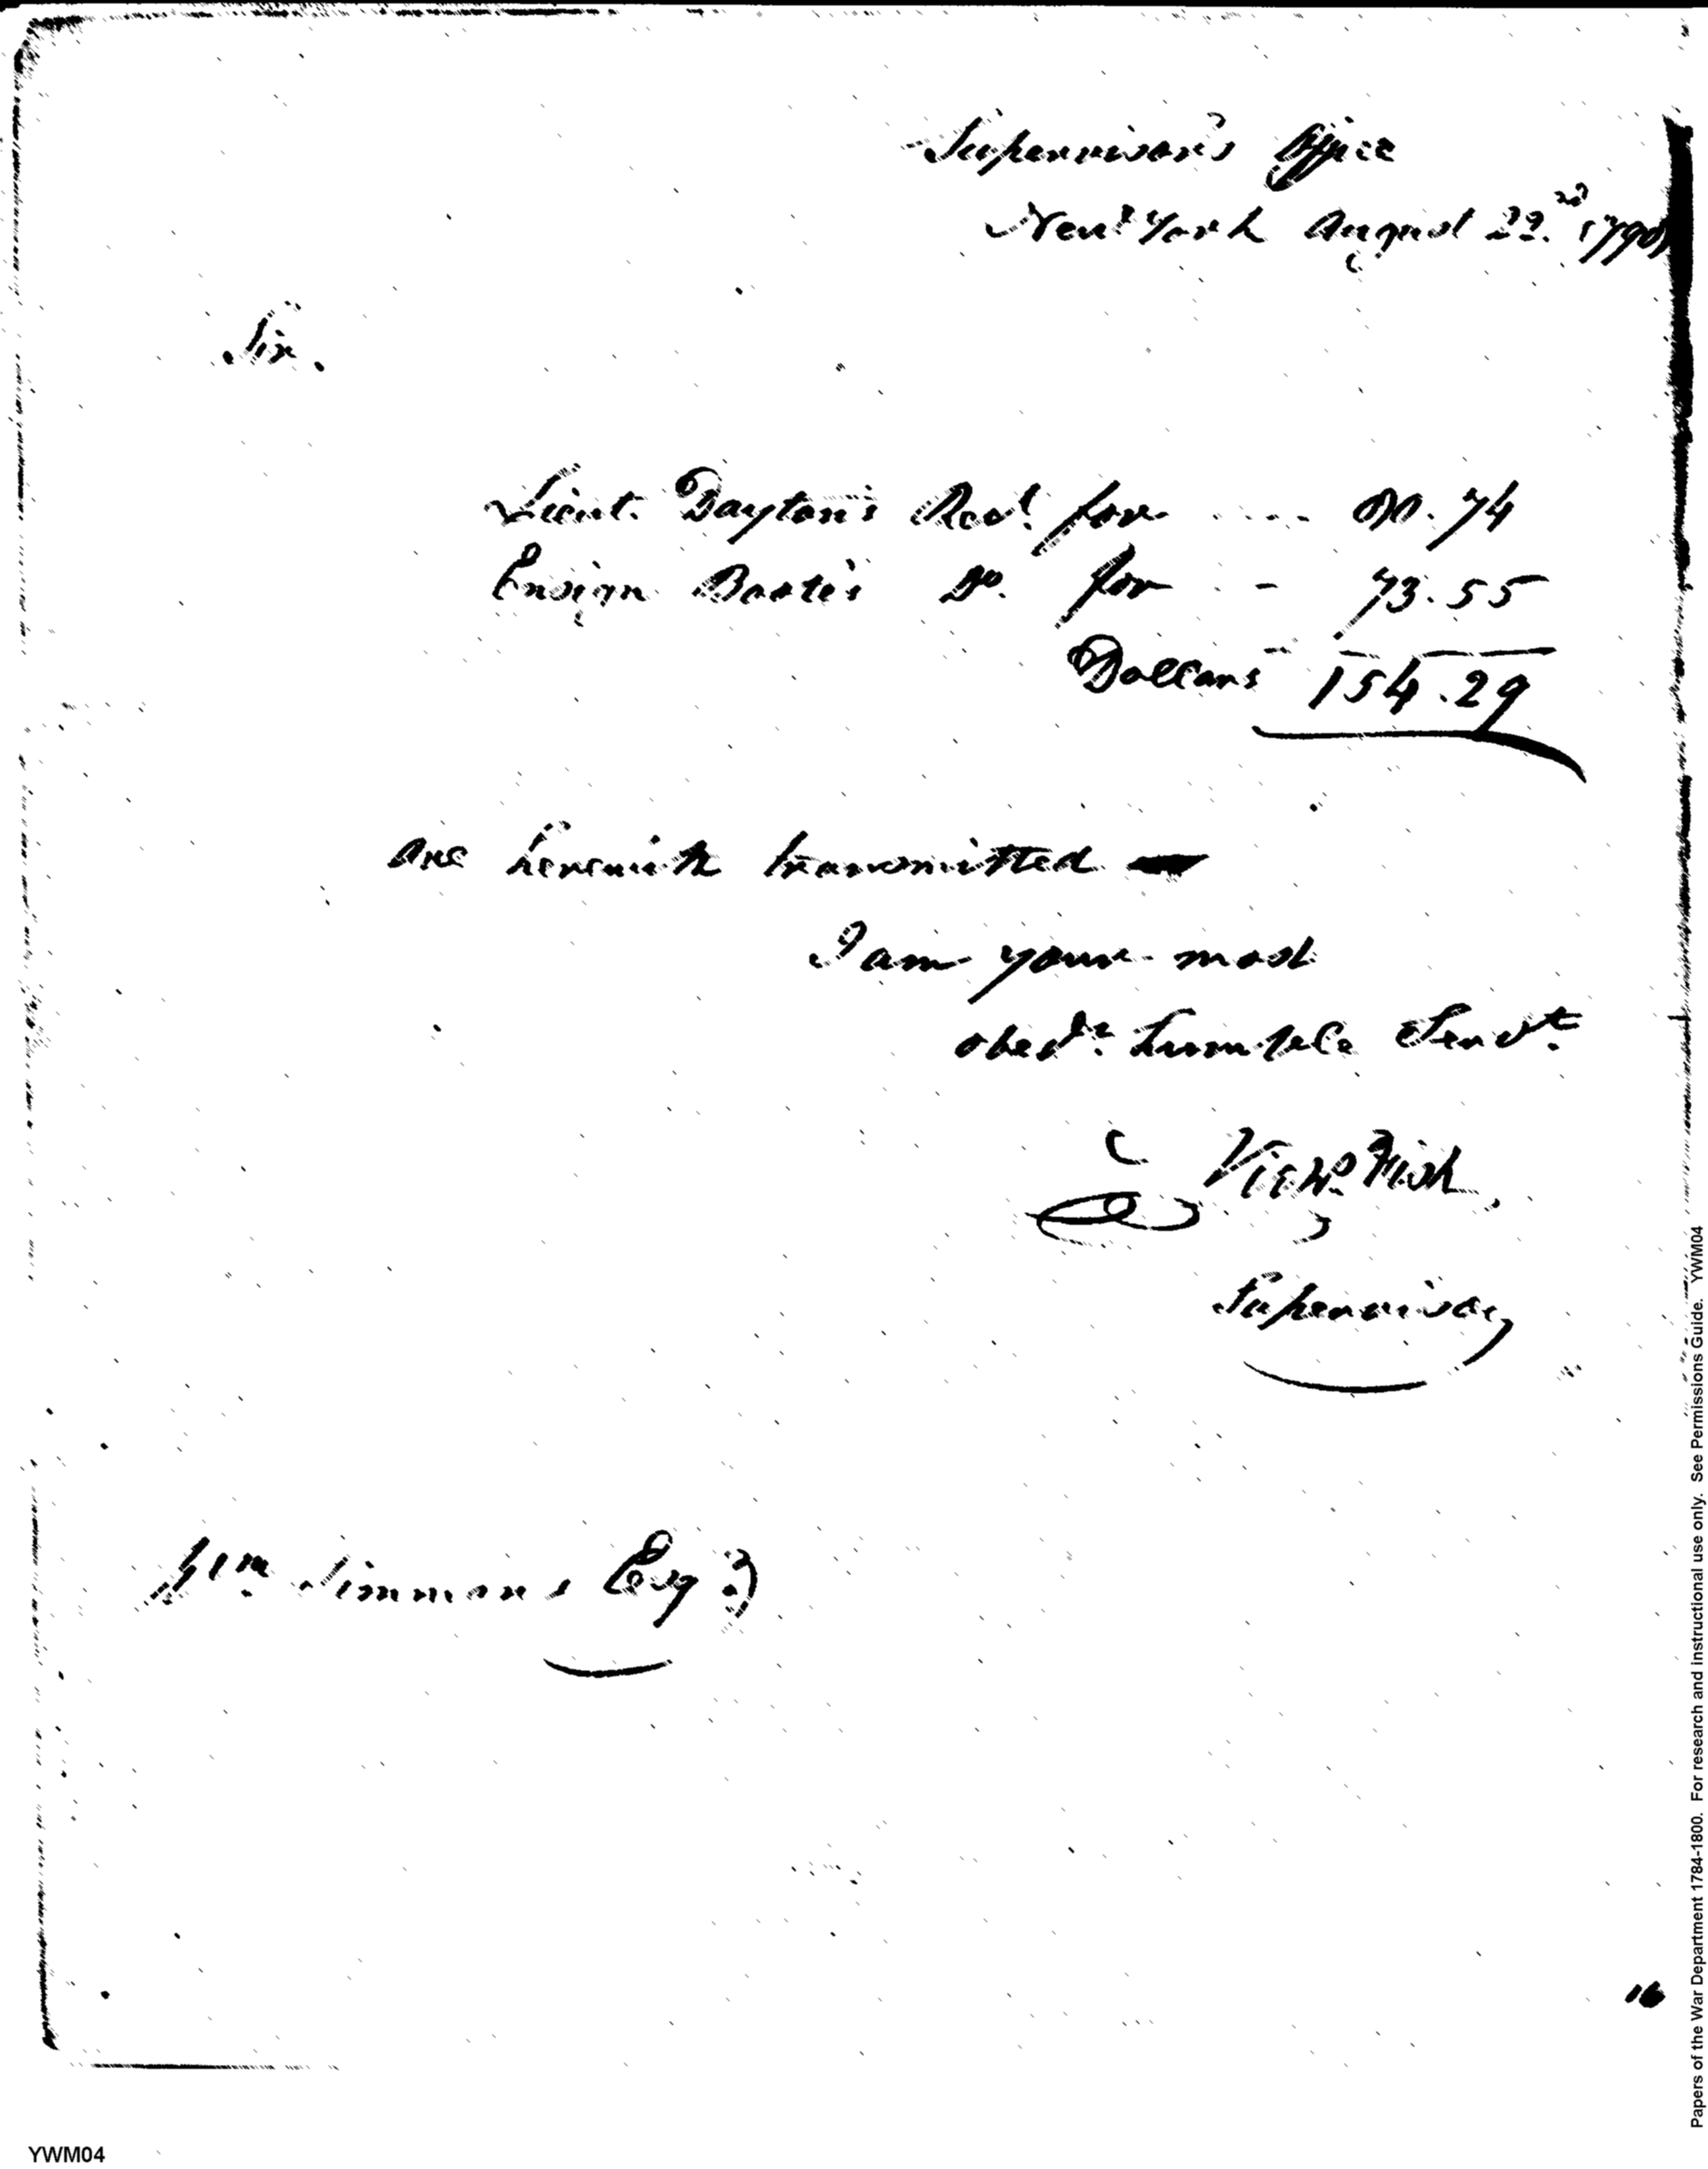 Supervisor's Office
New York August 22.nd
Sir.
Lieut. Dayton's Rect. for .... 80.74
Ensign Do. for - 73.55
Dollars 154.29
are herewith transmitted
I am your most
obedt. humble Servt.
Fish
Supervisor
Wm. Simmons Esqr.
16
YWM04
Papers of the War Department 1784-1800. For research and instructional use only. See Permissions Guide. YWM04